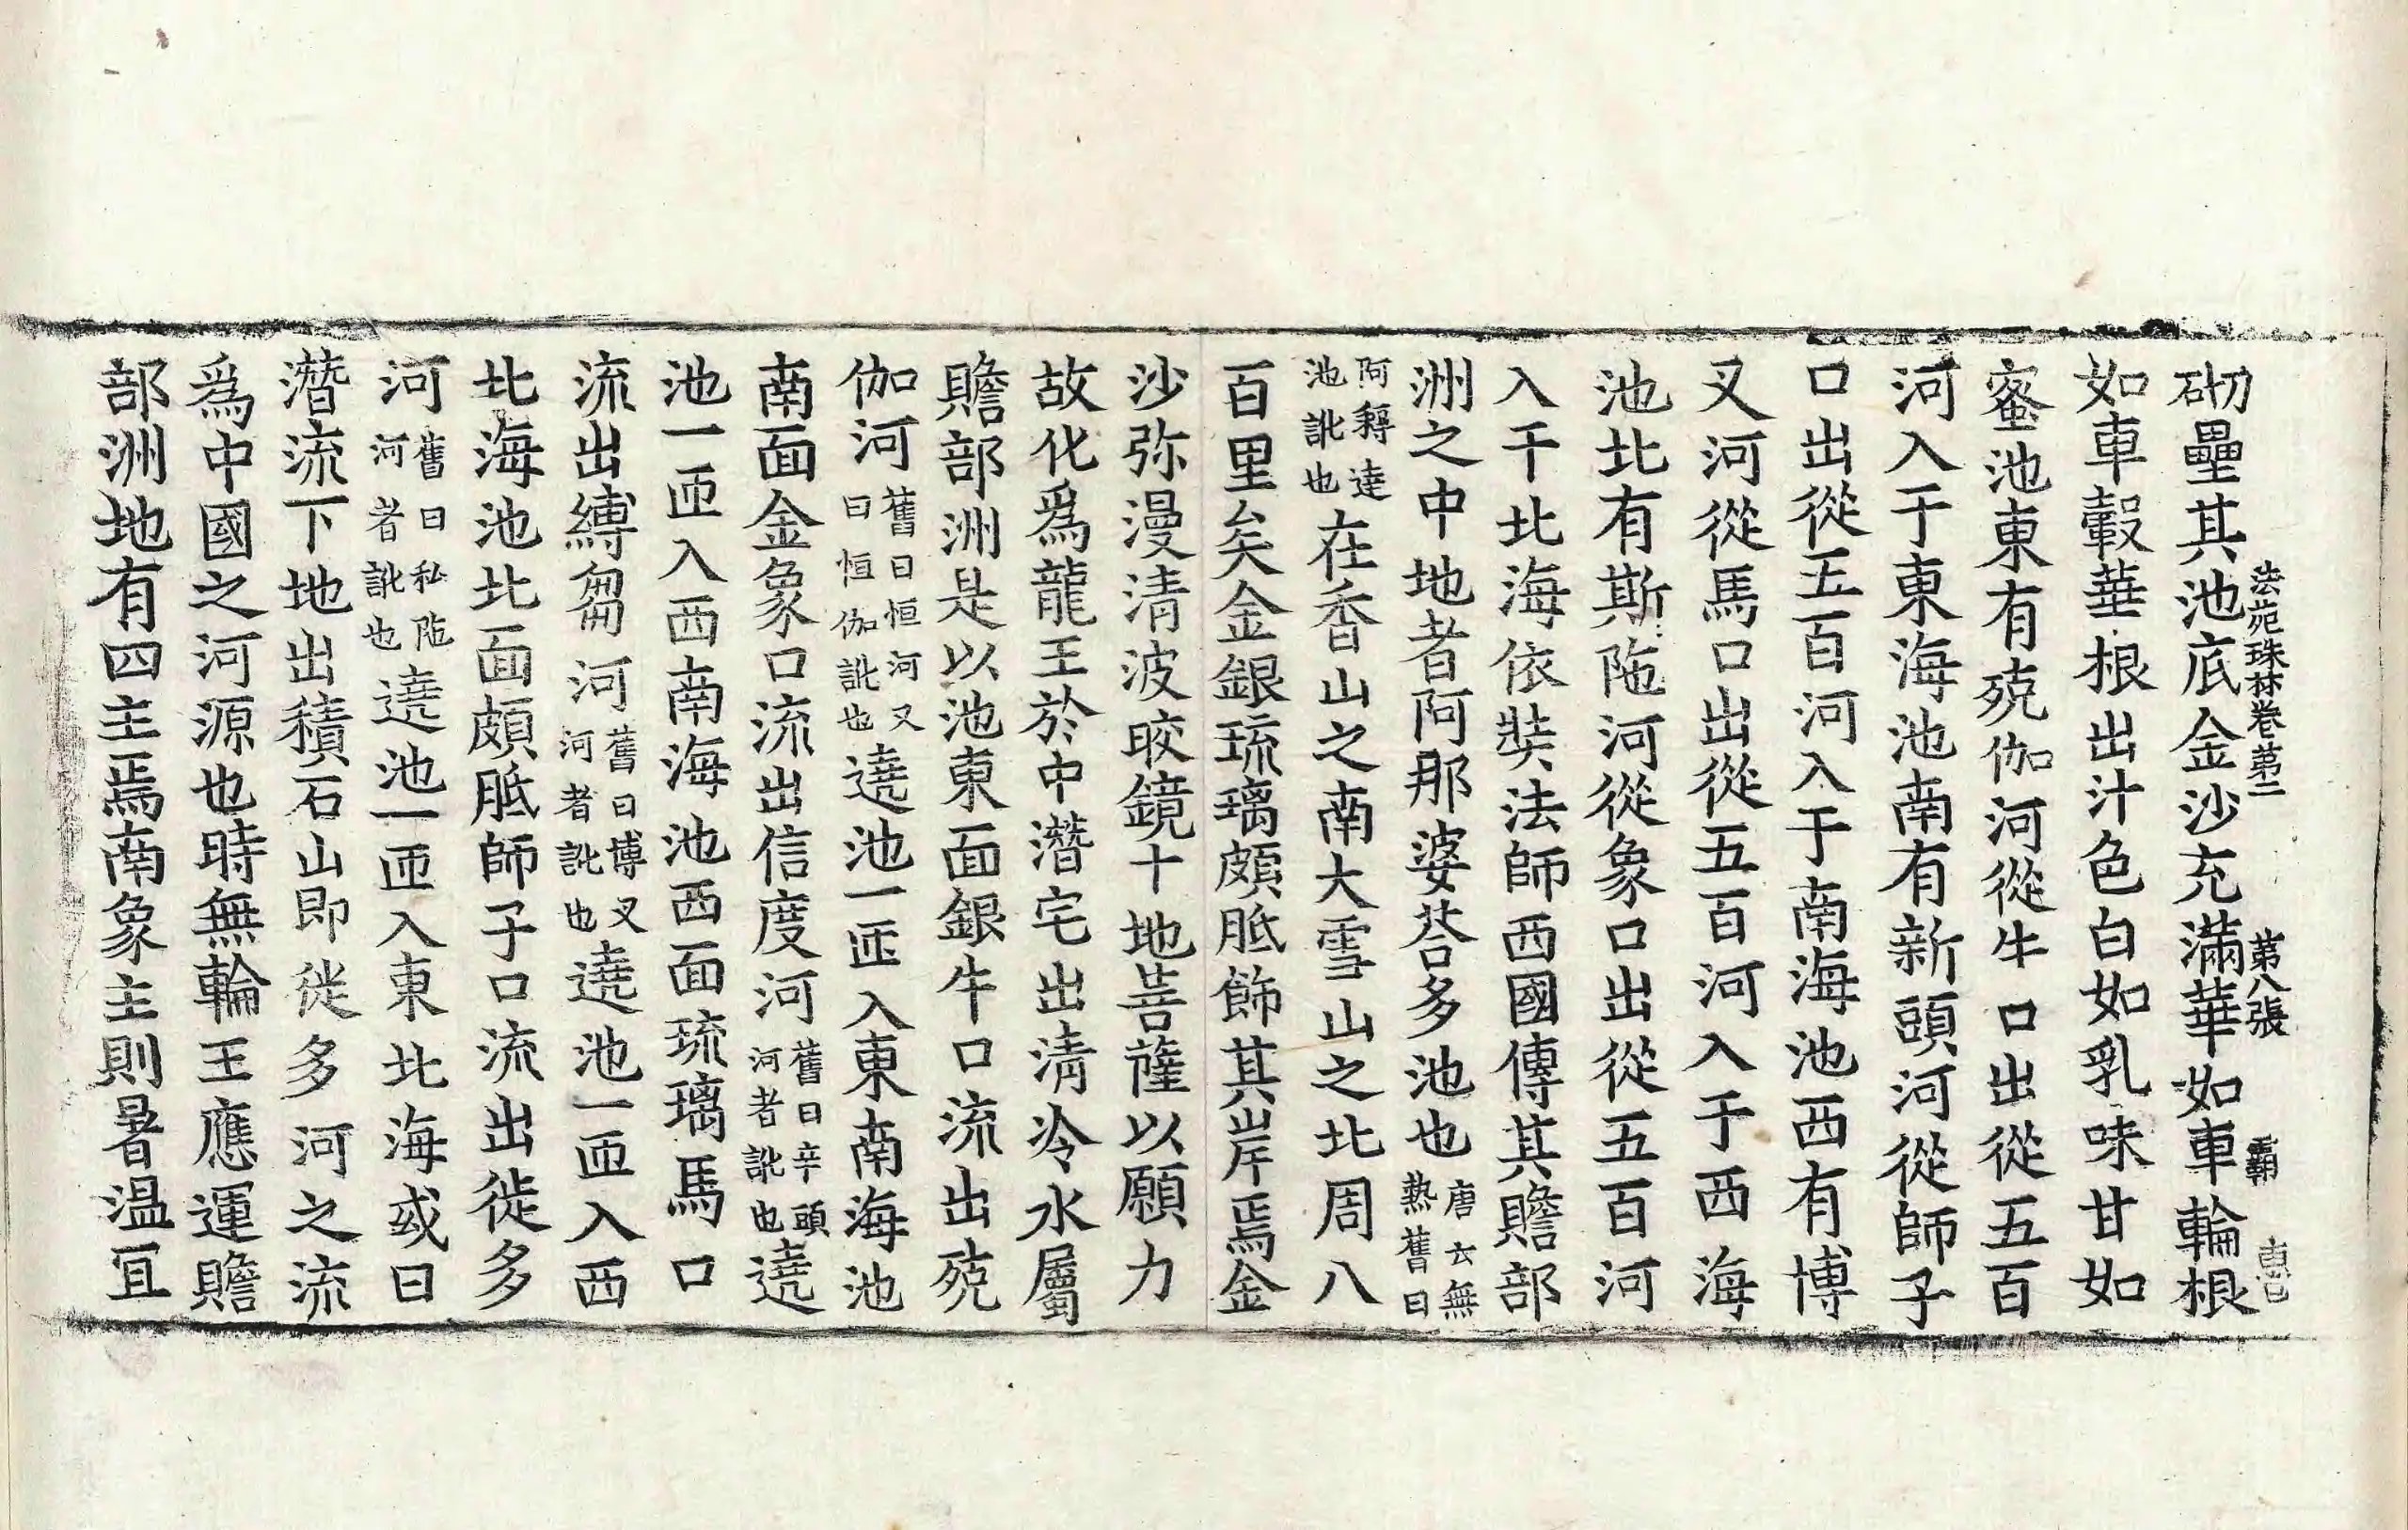 法苑珠林卷第二　第八張　覇
砌壘其池底金沙充滿華如車輪根
如車轂華根出汁色白如乳味甘如
蜜池東有殑伽河從牛口出從五百
河入于東海池南有新頭河從師子
口出從五百河入于南海池西有博
叉河從馬口出從五百河入于西海
池北有斯陁河從象口出從五百河
入于北海依奘法師西國傳其贍部
洲之中地者阿那婆荅多池也唐云無熱舊曰
阿耨達池訛也在香山之南大雪山之北周八
百里矣金銀琉璃頗胝飾其岸焉金
沙弥漫清波皎鏡十地菩薩以願力
故化爲龍王於中潛宅出清泠水屬
贍部洲是以池東面銀牛口流出殑
伽河舊曰恒河又曰恒伽訛也遶池一匝入東南海池
南面金象口流出信度河舊曰辛頭河者訛也遶
池一匝入西南海池西面琉璃馬口
流出縛芻河舊曰博叉河者訛也遶池一匝入西
北海池北面頗胝師子口流出徙多
河舊曰私陁河者訛也遶池一匝入東北海或曰
潛流下地出積石山即徙多河之流
爲中國之河源也時無輪王應運贍
部洲地有四主焉南象主則暑温宜